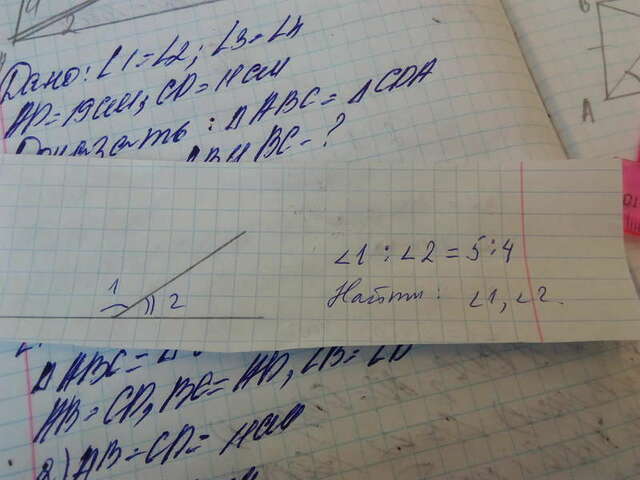 4
2
Дано: ∠1=∠2; ∠3=∠4
AD=19см, CD=11см
Доказать: △ABC=△CDA
BC-?
B
A
∠1:∠2=5:4
Найти: ∠1,∠2.
1
2
△ABC=△
AB=CD, BC=AD, ∠B=∠D
2) AB=CD=11см